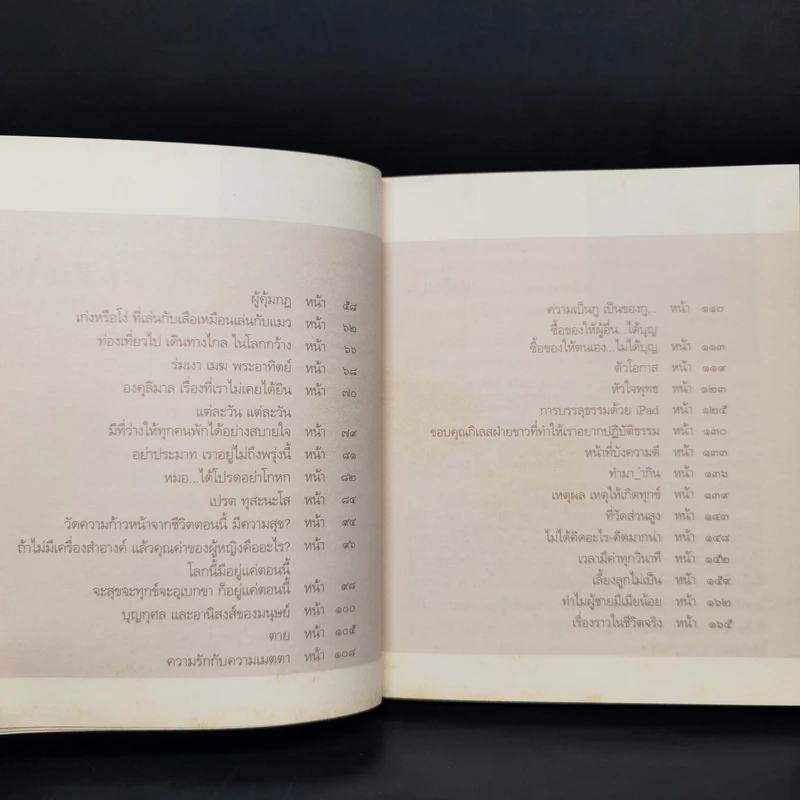 ผู้คุ้มกฎ หน้า ๕๘
เก่งหรือโง่ ที่เล่นกับเสือเหมือนเล่นกับแมว หน้า ๖๒
ท่องเที่ยวไป เดินทางไกล ในโลกกว้าง หน้า ๖๖
ร่มเงา เมฆ พระอาทิตย์ หน้า ๖๘
องคุลิมาล เรื่องที่เราไม่เคยได้ยิน หน้า ๗๐
แต่ละวัน แต่ละวัน
มีที่ว่างให้ทุกคนพักได้อย่างสบายใจ หน้า ๗๙
อย่าประมาท เราอยู่ไม่ถึงพรุ่งนี้ หน้า ๘๑
หมอ...ได้โปรดอย่าโกหก หน้า ๘๒
เปรต ทุสะนะโส หน้า ๘๔
วัดความก้าวหน้าจากชีวิตตอนนี้ มีความสุข? หน้า ๙๔
ถ้าไม่มีเครื่องสำอางค์ แล้วคุณค่าของผู้หญิงคืออะไร? หน้า ๙๖
โลกนี้มีอยู่แค่ตอนนี้
จะสุขจะทุกข์จะอุเบกขา ก็อยู่แค่ตอนนี้ หน้า ๙๘
บุญกุศล และอานิสงส์ของมนุษย์ หน้า ๑๐๐
ตาย หน้า ๑๐๕
ความรักกับความเมตตา หน้า ๑๐๘
ความเป็นกู เป็นของกู... หน้า ๑๑๐
ซื้อของให้ผู้อื่น...ได้บุญ
ซื้อของให้ตนเอง...ไม่ได้บุญ หน้า ๑๑๓
ตัวโอกาส หน้า ๑๑๙
หัวใจพุทธ หน้า ๑๒๓
การบรรลุธรรมด้วย iPad หน้า ๑๒๕
ขอบคุณกิเลสฝ่ายขาวที่ทำให้เราอยากปฏิบัติธรรม หน้า ๑๓๐
หน้าที่บังความดี หน้า ๑๓๓
ทำมา_่ากิน หน้า ๑๓๖
เหตุผล เหตุให้เกิดทุกข์ หน้า ๑๓๙
ที่วัดส่วนสูง หน้า ๑๔๓
ไม่ได้คิดอะไร-คิดมากน่า หน้า ๑๔๘
เวลามีค่าทุกวินาที หน้า ๑๕๒
เลี้ยงลูกไม่เป็น หน้า ๑๕๙
ทำไมผู้ชายมีเมียน้อย หน้า ๑๖๒
เรื่องราวในชีวิตจริง หน้า ๑๖๕